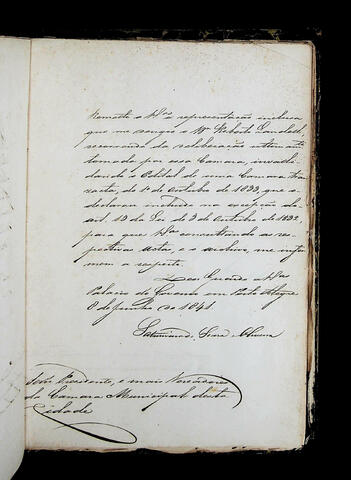 Remetto a V.ces a representação inclusa
que me dirigio
recorrendo da deliberação ultimam.te
tomada por essa Camara,
dando o Edital de uma Camara tran
zacta, de 1º de Outubro de 1833, que o
declarou incluido na excepção do
art. 19 da Lei de 3 de Outubro de 1832,
para que V.ces consultando as res-
pectivas actas, e o archivo, me infor
mem a respeito.
Deos Guarde a V.ces
Palacio do Governo em Porto Alegre
8 de Junho de 1841.
Saturnino
Snrs. Presidente, e mais Vereadores
da Camara Municipal desta
Cidade